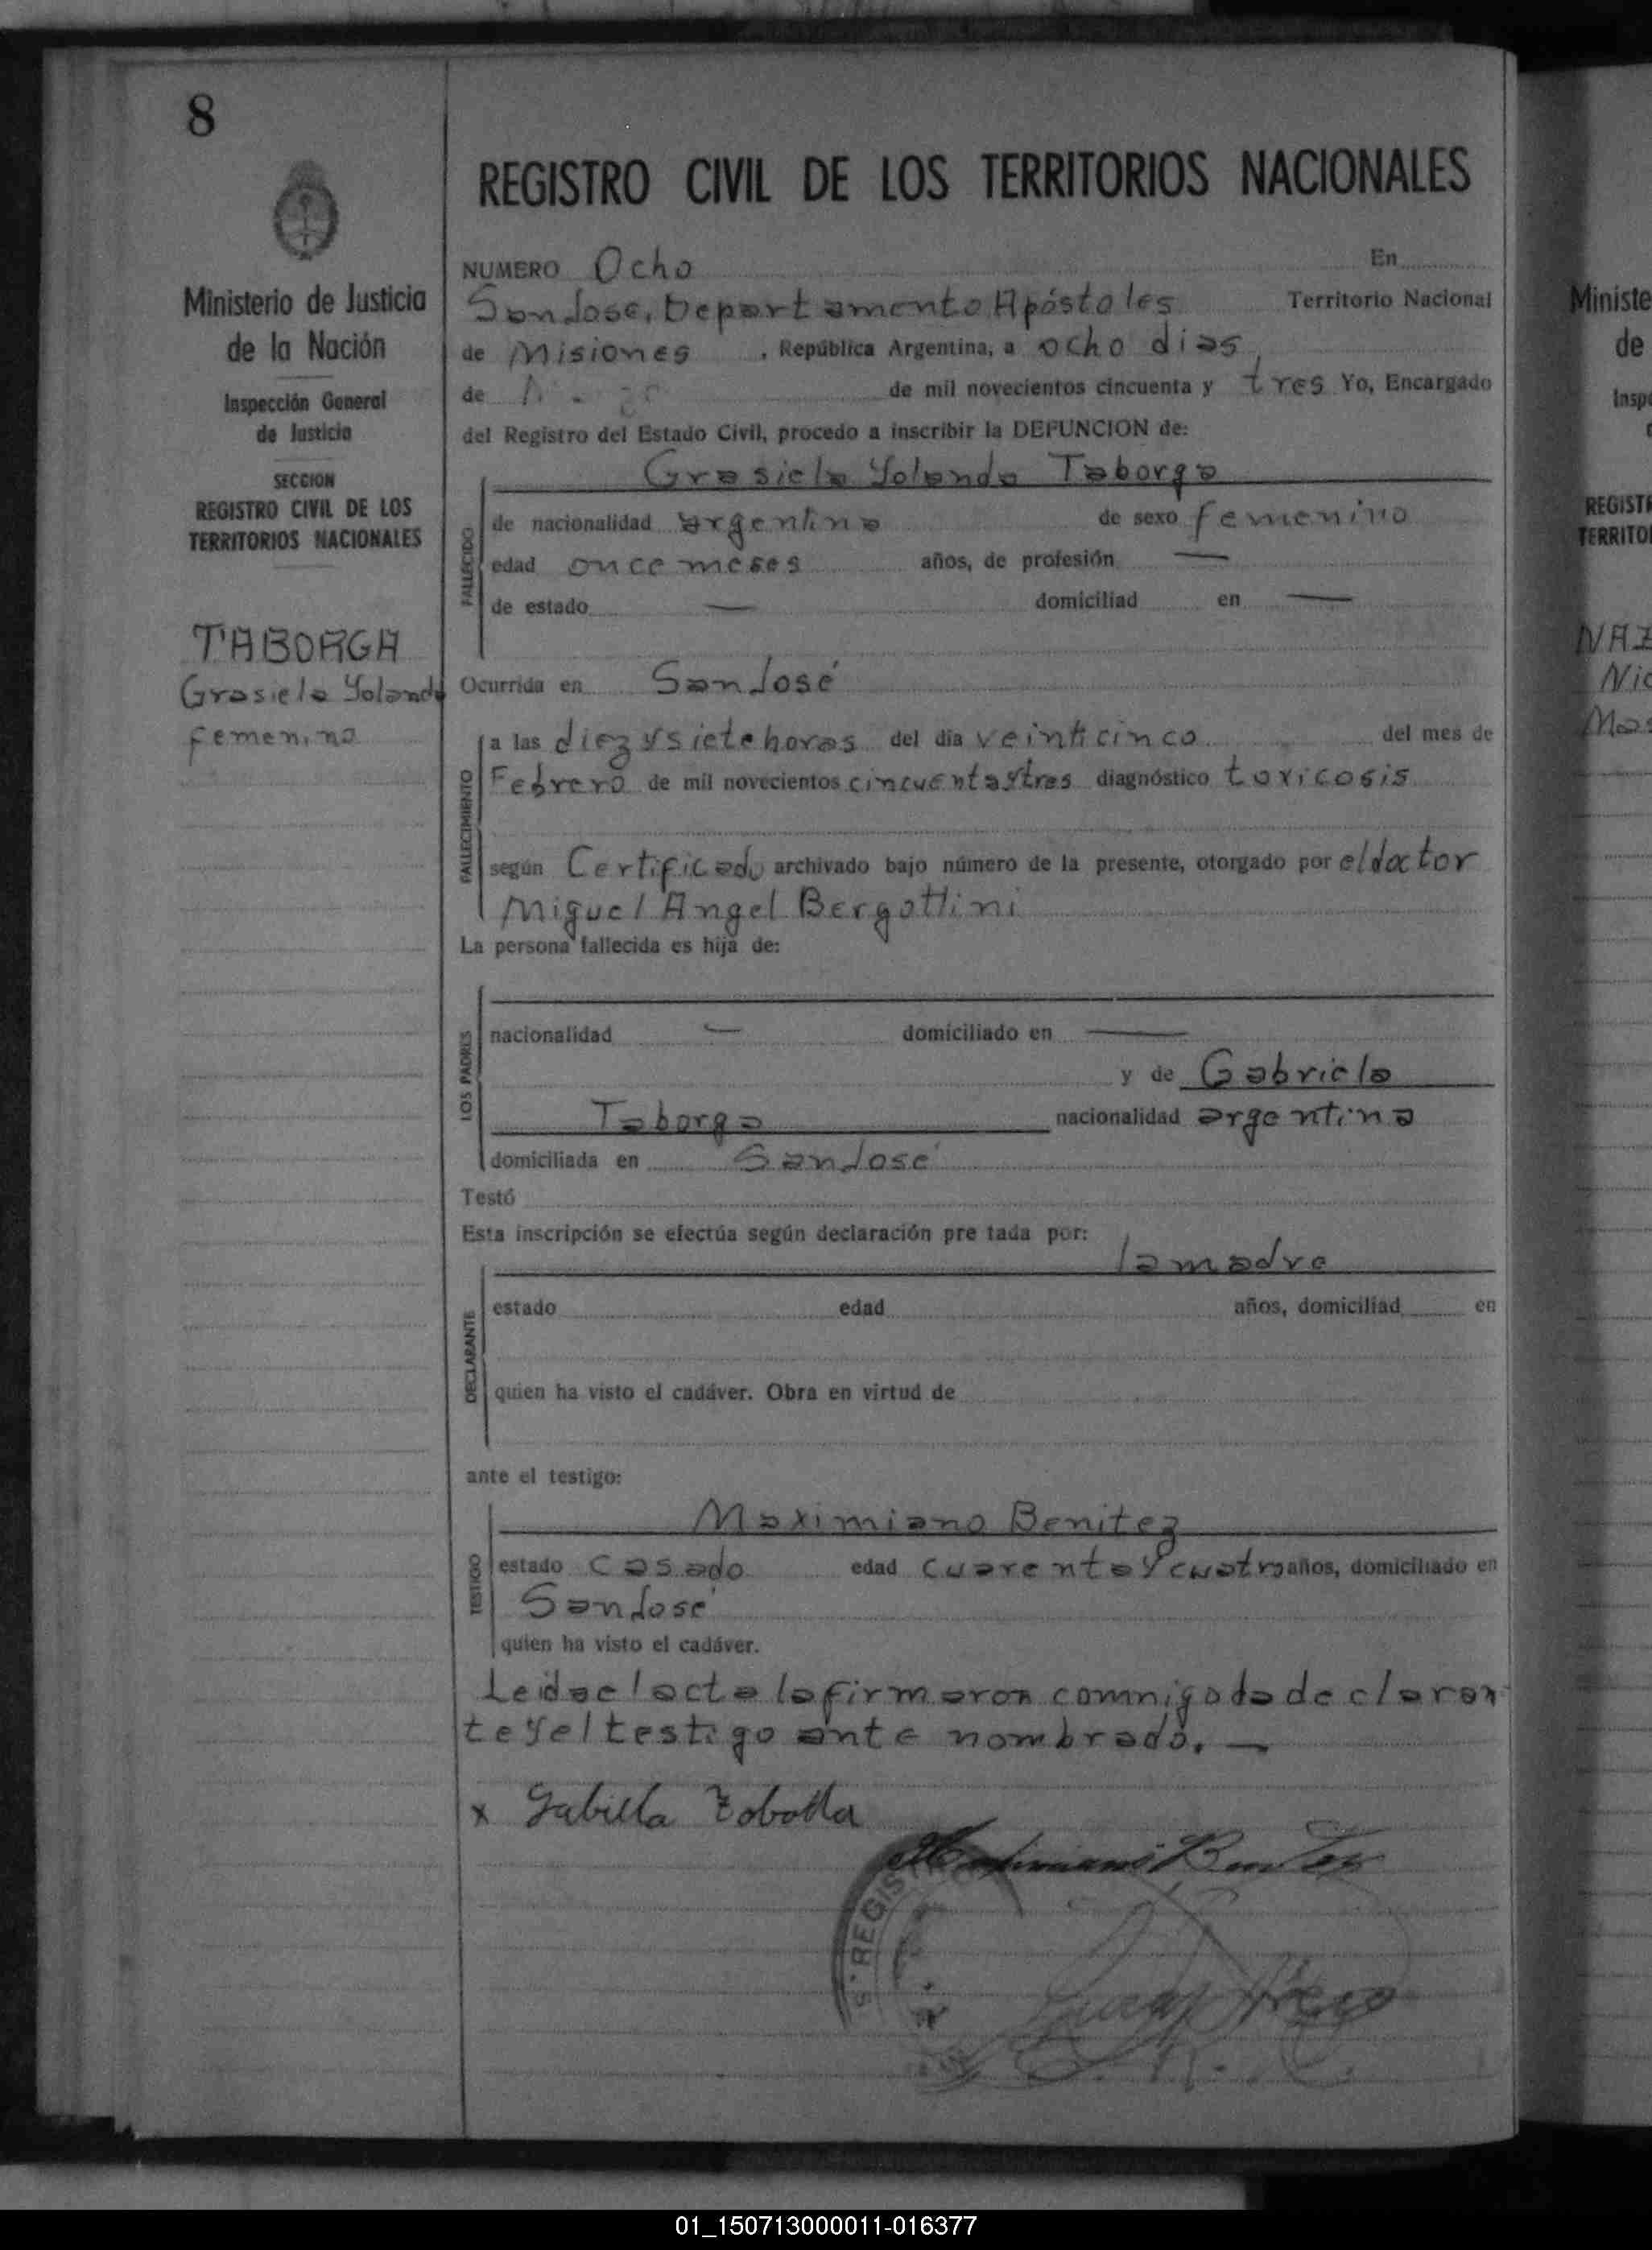 8
REGISTRO CIVIL DE LOS TERRITORIOS NACIONALES
Ministerio de Justicia
de la Nación
Inspección General
de Justicia
SECCION
REGISTRO CIVIL DE LOS
TERRITORIOS NACIONALES
TABORGA
Grasiela Yolanda
femenino
NUMERO Ocho En
San José, Departamento Apóstoles Territorio Nacional
de Misiones , República Argentina, a ocho dias
de de mil novecientos cincuenta y tres Yo, Encargado
del Registro del Estado Civil, procedo a inscribir la DEFUNCION de:
Grasiela Yolanda Taborga
FALLECIDO
de nacionalidad argentina de sexo femenino
edad once meses años, de profesión —
de estado — domiciliad en —
Ocurrida en San José
FALLECIMIENTO
a las diez y siete horas del día veinticinco del mes de
Febrero de mil novecientos cincuenta y tres diagnóstico toxicosis
según Certificado archivado bajo número de la presente, otorgado por el doctor
Miguel Angel Bergottini
La persona fallecida es hija de:
LOS PADRES
nacionalidad — domiciliado en —
y de Gabriela
Taborga nacionalidad argentina
domiciliada en San José
Testó
Esta inscripción se efectúa según declaración pre tada por:
la madre
DECLARANTE
estado edad años, domiciliad en
quien ha visto el cadáver. Obra en virtud de
ante el testigo:
Maximiano Benitez
TESTIGO
estado casado edad cuarenta y cuatro años, domiciliado en
San José
quien ha visto el cadáver.
Leida el acta la firmaron comnigo la declaran
te y el testigo ante nombrado. —
x
REGIS
Ministe
de
Insp
REGIST
TERRITO
NAZ
Nic
01_150713000011-016377